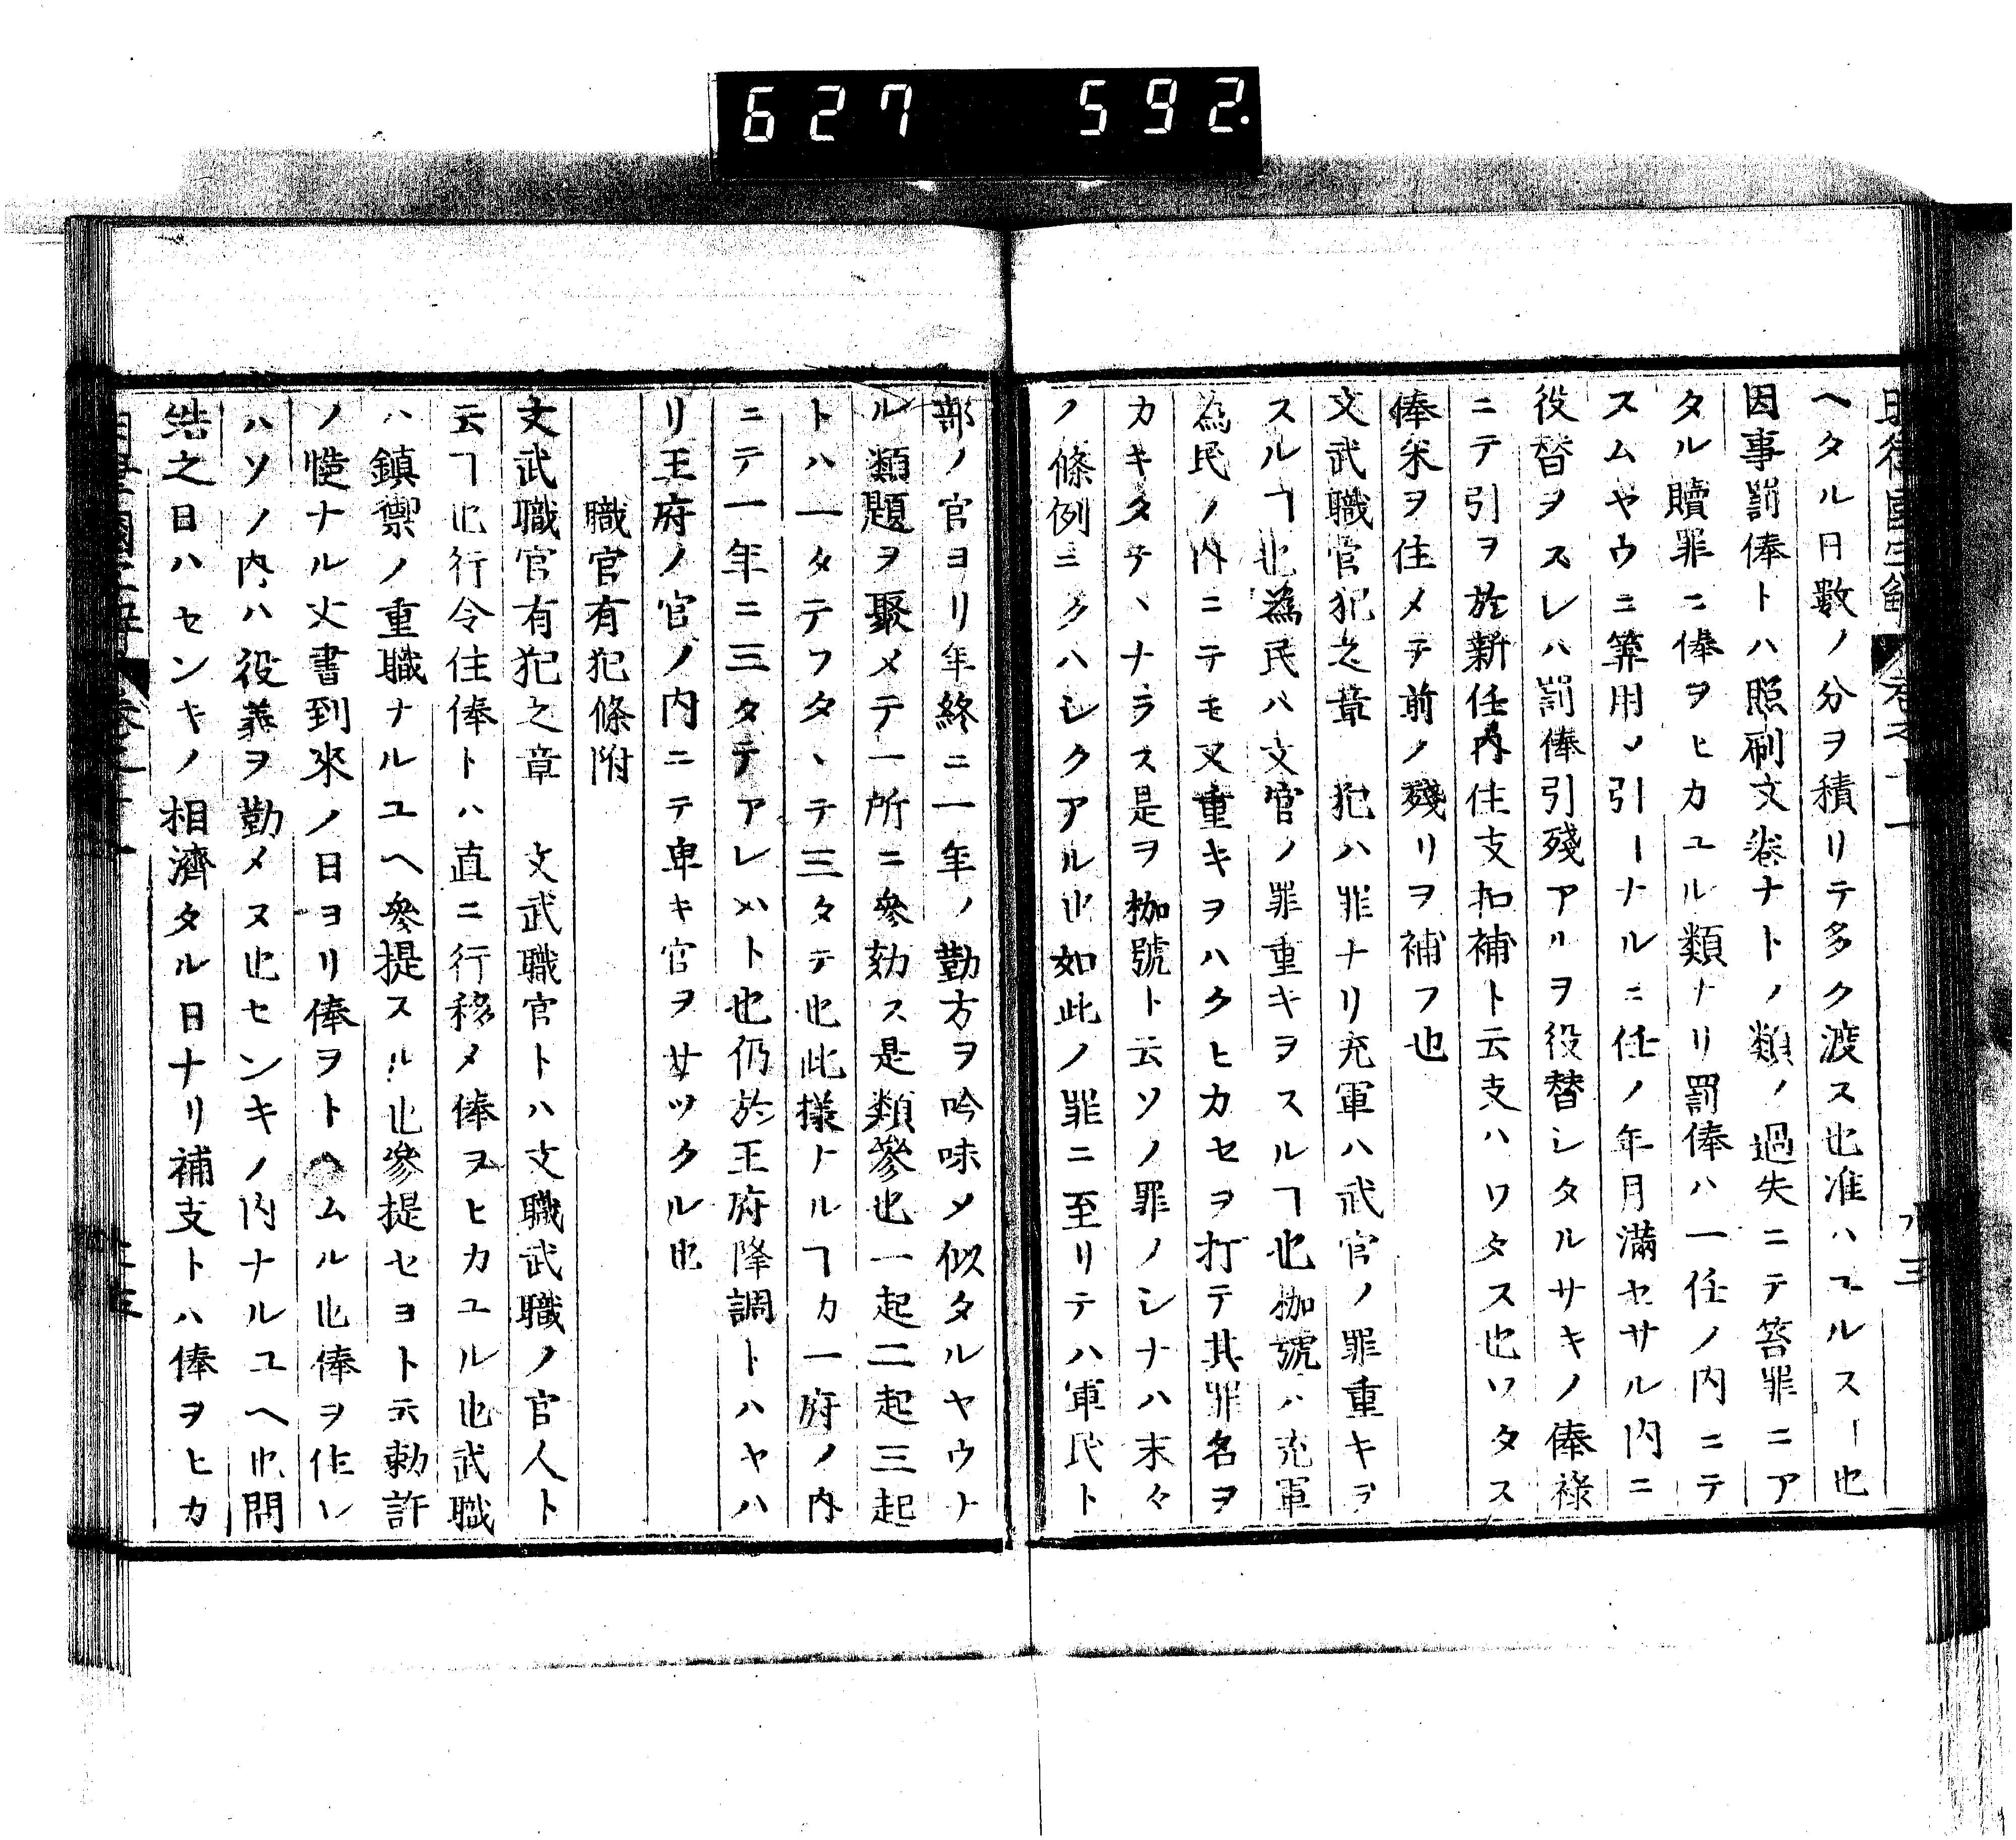 627 592.
ヘタル日數ノ分ヲ積リテ多ク渡ス也准ハユルスヿ也
因事罰俸トハ照刷文卷ナトノ類ノ過失ニテ笞罪ニア
タル贖罪ニ俸ヲヒカユル類ナリ罰俸ハ一任ノ内ニテ
スムヤウニ算用メ引ーナルニ任ノ年月満セサル内ニ
役替ヲスレハ罰俸引殘アルヲ役替シタルサキノ俸祿
ニテ引ヲ於新任内住支扣補ト云支ハワタス也ワタス
俸米ヲ住メテ前ノ殘リヲ補フ也
文武職官犯之章 犯ハ罪ナリ充軍ハ武官ノ罪重キヲ
スルヿ也為民ハ文官ノ罪重キヲスルヿ也枷號ハ充軍
為民ノ内ニテモ又重キヲハクヒカセヲ打テ其罪名ヲ
カキタテヽナラス是ヲ枷號ト云ソノ罪ノシナハ末々
ノ條例ニクハシクアル也如此ノ罪ニ至リテハ軍民ト
部ノ官ヨリ年終ニ一年ノ勤方ヲ吟味メ似タルヤウナ
ル類題ヲ聚メテ一所ニ參効ス是類參也一起二起三起
トハ一タテフタヽテ三タテ也此様ナルヿカ一府ノ内
ニテ一年ニ三タテアレハト也仍於王府降調トハヤハ
リ王府ノ官ノ内ニテ卑キ官ヲサツクル也
職官有犯條附
文武職官有犯之章 文武職官トハ文職武職ノ官人ト
云ヿ也行令住俸トハ直ニ行移メ俸ヲヒカユル也武職
ハ鎮禦ノ重職ナルユヘ參提スル也參提セヨト云勅許
ノ慥ナル文書到來ノ日ヨリ俸ヲトヘムル也俸ヲ作レ
ハソノ内ハ役義ヲ勤メヌ也センキノ内ナルユヘ也問
結之日ハセンキノ相濟タル日ナリ補支トハ俸ヲヒカ